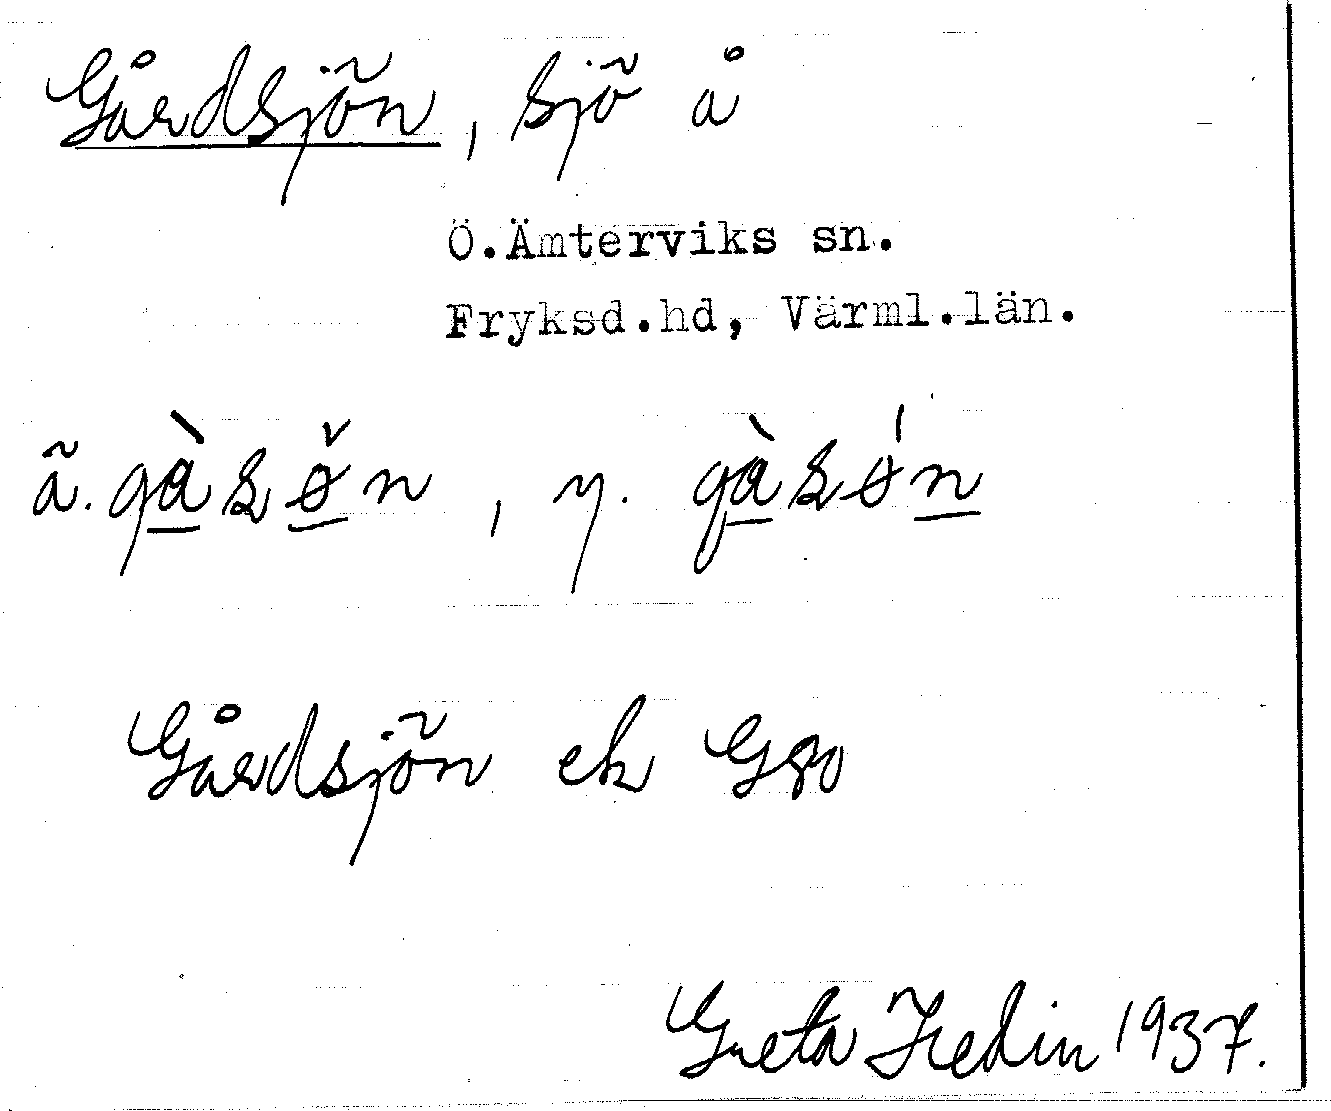 Gårdsjön, sjö å
Ö.Ämterviks sn.
Fryksd.hd, Värml.län.
ä. gàsøn, y. gàsøn
Gårdsjön ek G80
Greta Hedin 1937.